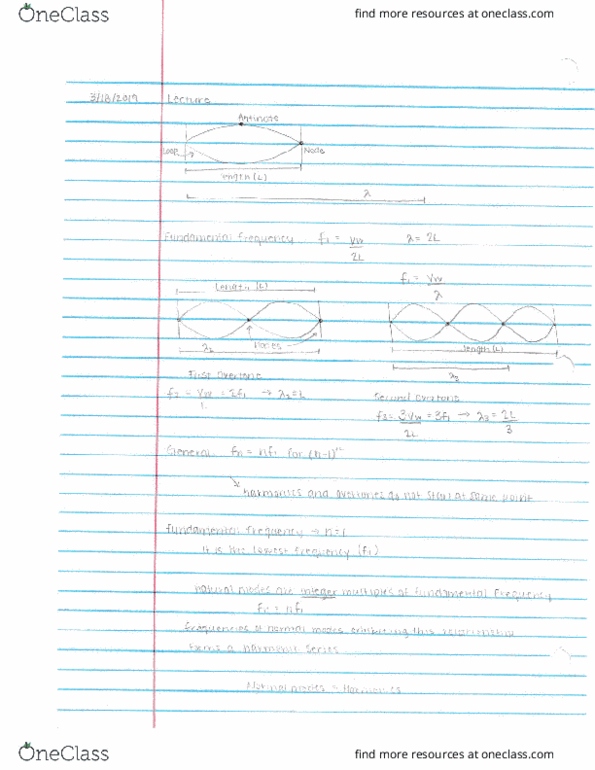 OneClass
find more resources at oneclass.com
3/18/2019 Lecture
Antinode
Loop
Node
length (L)
λ
Fundamental Frequency f₁ = Vw/2L λ = 2L
f₁ = Vw/λ
Length (L)
Nodes
λ₂
length (L)
λ₃
First Overtone
f₂ = Vw/L = 2f₁ → λ₂ = L
Second Overtone
f₃ = 3Vw/2L = 3f₁ → λ₃ = 2L/3
General fn = nf₁ for (n-1)th
harmonics and overtones do not start at same point
Fundamental Frequency → n=1
It is the lowest frequency (f₁)
natural modes are integer multiples of fundamental frequency
fn = nf₁
frequencies of normal modes exhibiting this relationship
forms a harmonic series
Normal modes = Harmonics
OneClass
find more resources at oneclass.com